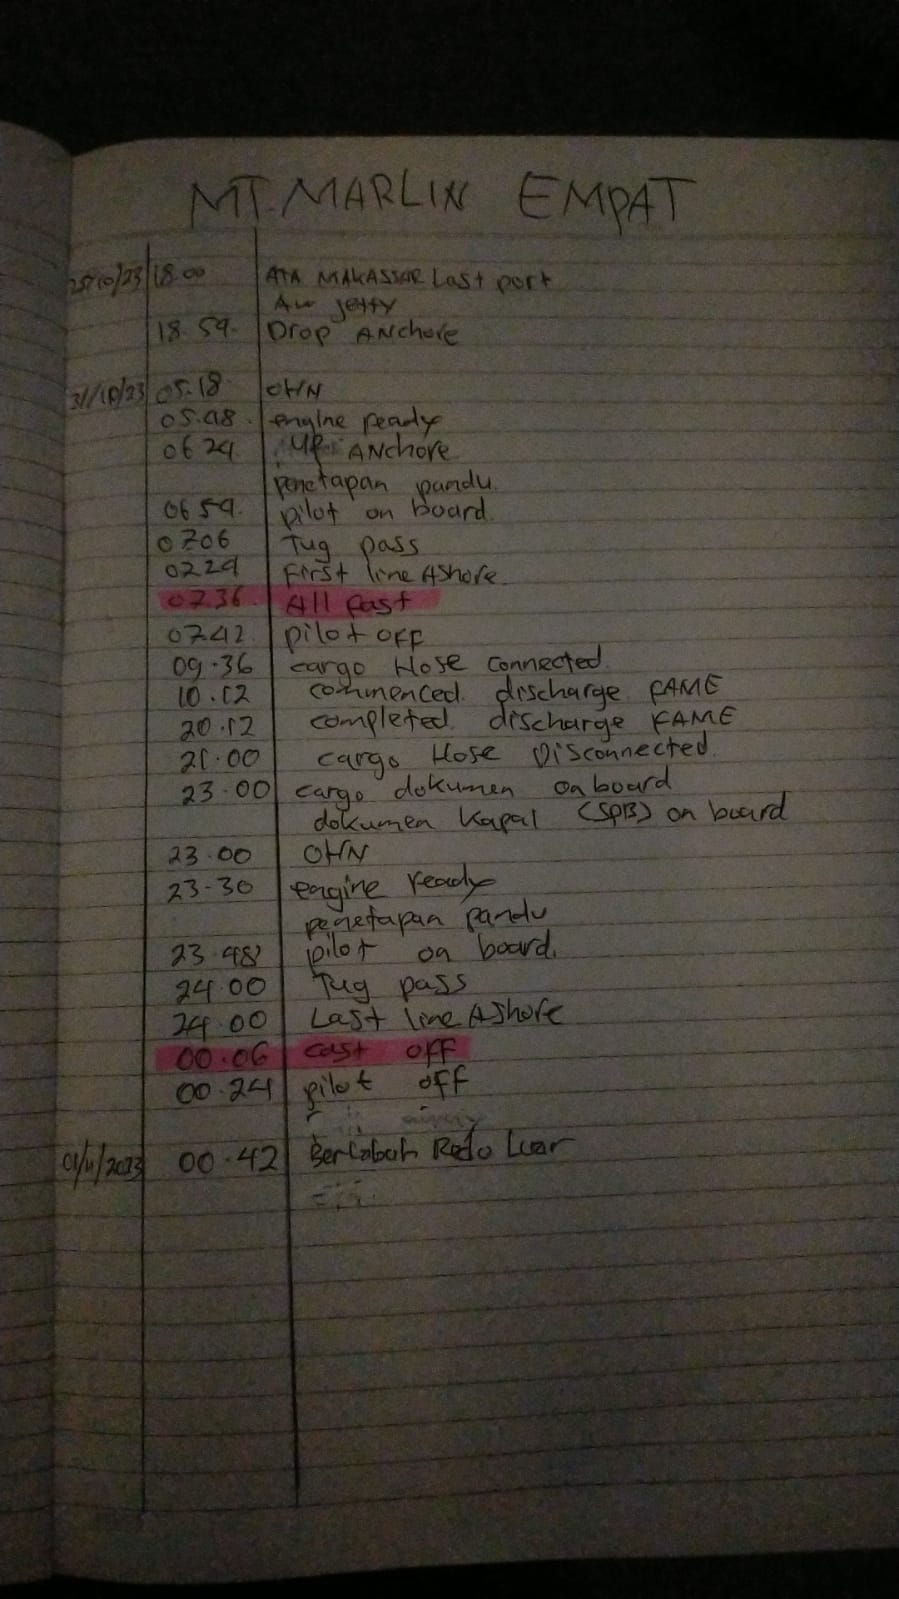 MT. MARLIN EMPAT
25/10/23 18.00 ATA MAKASSAR Last port
AW jetty
18.59. Drop ANchore
31/10/23 05.18 OHN
05.48. engine ready
0624 up ANchore
penetapan pandu.
0659. pilot on board.
0706 Tug pass
0724 First line AShore.
0736. All fast
0742. pilot OFF
09.36 cargo Hose Connected.
10.12 commenced. discharge FAME
20.12 completed. discharge FAME
21.00 cargo Hose Disconnected.
23.00 cargo dokumen on board
dokumen Kapal (SPB) on board
23.00 OHN
23-30 engine ready
penetapan pandu
23.48 pilot on board.
24.00 Tug pass
24.00 Last line AShore
00.06 cast off
00.24 pilot off
01/11/2023 00.42 Berlabuh Rede Luar